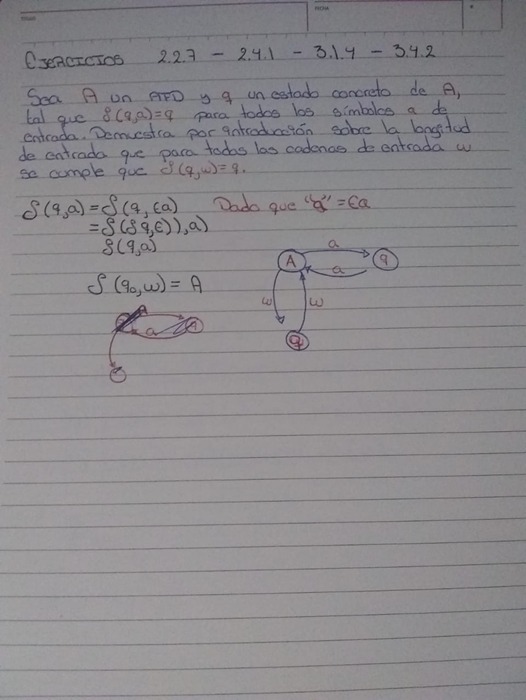 EJERCICIOS 2.2.7 - 2.4.1 - 3.1.4 - 3.4.2
Sea A un AFD y q un estado concreto de A,
tal que δ(q,a)=q para todos los símbolos a de
entrada. Demuestra por introducción sobre la longitud
de entrada que para todas las cadenas de entrada w
se cumple que δ(q,w)=q.
δ(q,a)=δ(q,εa) Dado que "a"=εa
=δ(δq,ε)),a)
δ(q,a)
δ(q₀,w)=A
a
A
q
a
w
w
q
a